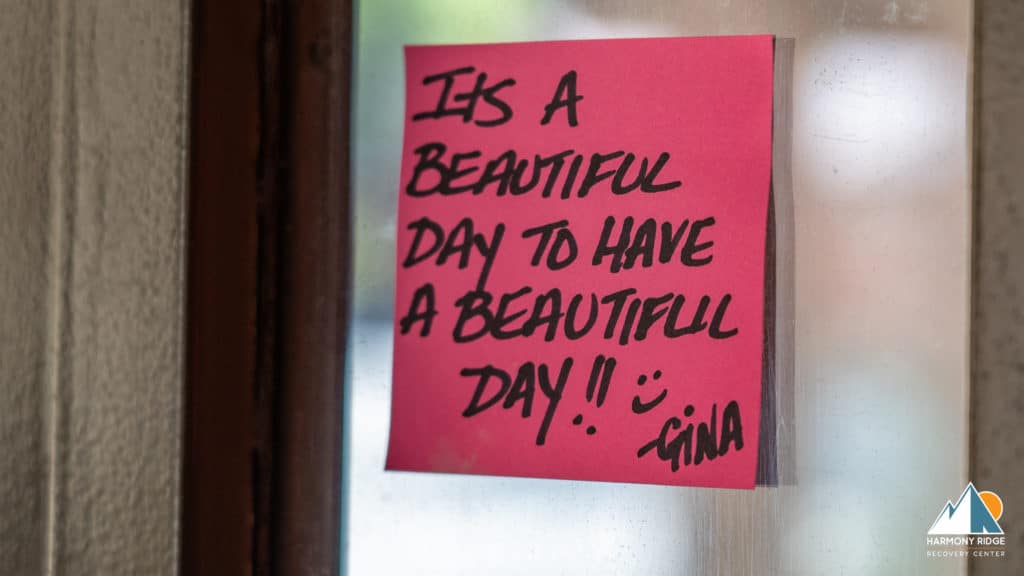 IT'S A
BEAUTIFUL
DAY TO HAVE
A BEAUTIFUL
DAY!! :)
-GINA
HARMONY RIDGE
RECOVERY CENTER